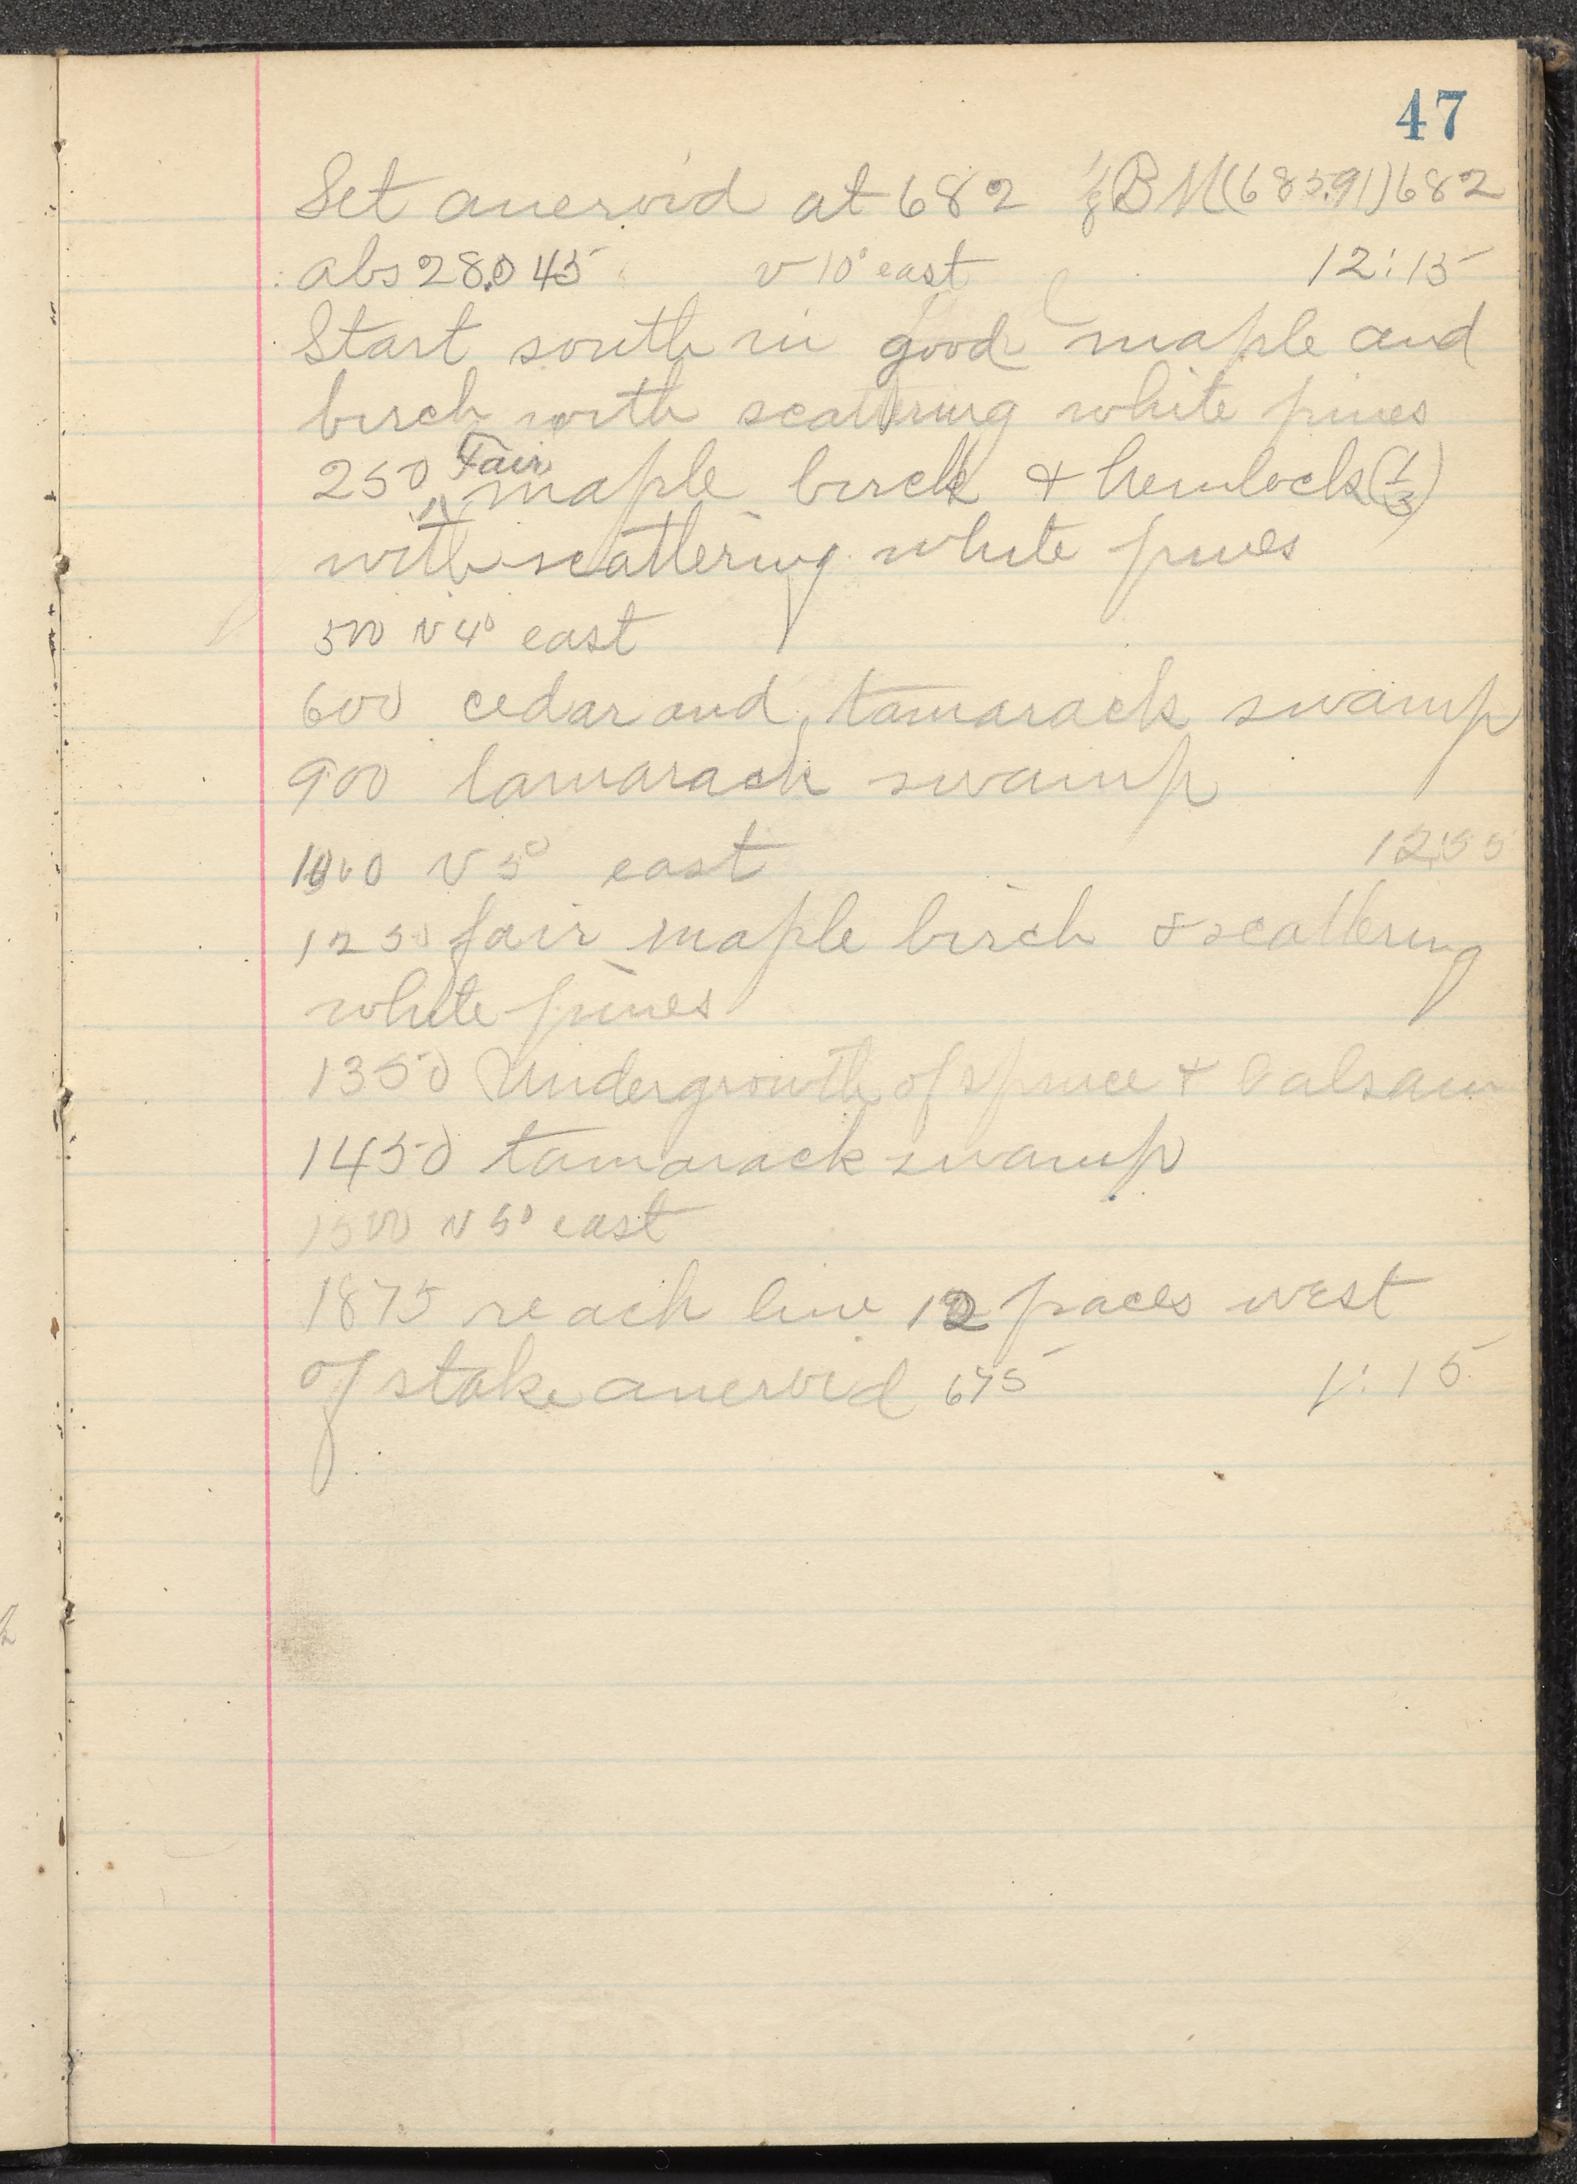 47
Set aneroid at 682 BM (683.91) 682
abs 28.045 v 10° east 12:15
Start south in good maple and
birch with scattering white pines
250 Fair maple birch & hemlock (1/3)
with scattering white pines
500 v 4° east
600 cedar and tamarack swamp
900 tamarack swamp
1000 v 5° east 12:55
1250 fair maple birch & scattering
white pines
1350 Undergrowth of spruce + balsam
1450 tamarack swamp
1500 v 5° east
1875 reach line 12 paces west
of stake aneroid 675 1:15